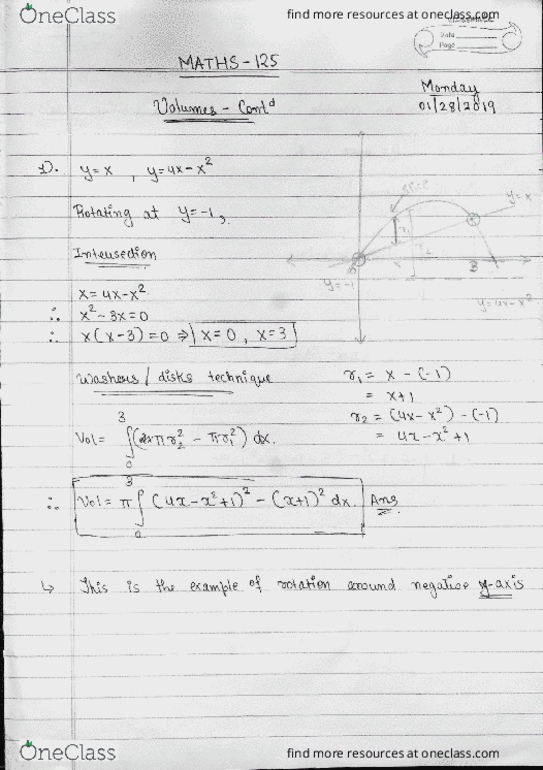 OneClass
find more resources at oneclass.com
Date
Page
MATHS - 125
Monday
01/28/2019
Volumes - Contd
1). y=x , y=4x-x²
Rotating at y=-1,
slice
y=x
r₁
r₂
3
y=-1
y=4x-x²
Intersection
x=4x-x²
∴ x²-3x=0
∴ x(x-3)=0 ⇒ x=0, x=3
Washers/disks technique
r₁ = x-(-1)
= x+1
r₂ = (4x-x²)-(-1)
= 4x-x²+1
Vol= ∫₀³ (πr₂² - πr₁²) dx.
∴ Vol= π ∫₀³ (4x-x²+1)² - (x+1)² dx. Ans
↳ This is the example of rotation around negative y-axis
OneClass
find more resources at oneclass.com